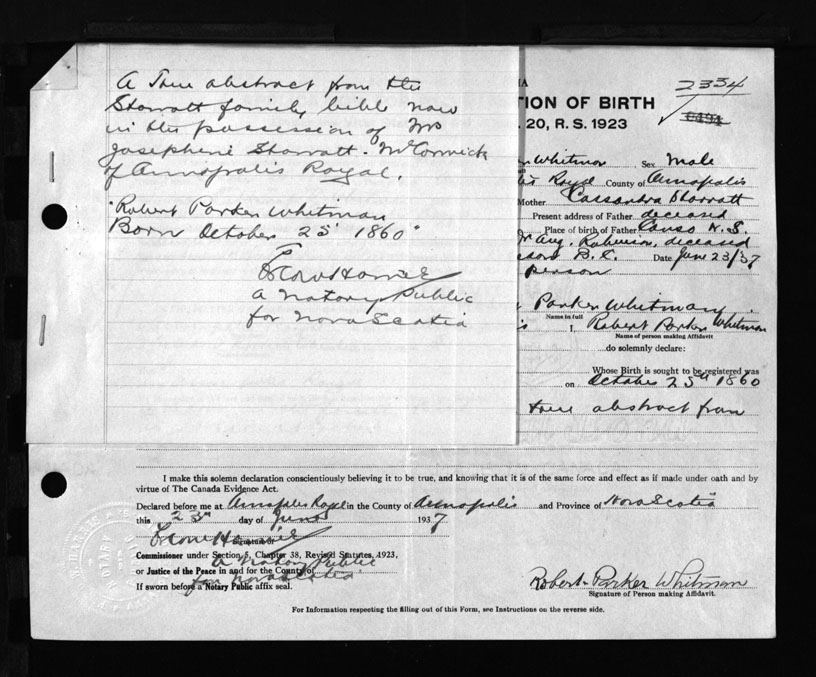 A True abstract from the
Sharratt family bible now
in the possession of Mrs
Josephine Sharratt McCormick
of Annapolis Royal.
"Robert Parker Whitman
Born October 25 1860"
A Notary Public
for Nova Scotia
2334
6494
ION OF BIRTH
. 20, R. S. 1923
Whitman Sex Male
Royal County of Annapolis
Mother Cassandra Sharratt
Present address of Father deceased
Place of birth of Father Canso N.S.
deceased
B.C. Date June 23/37
person
Parker Whitman
Name in full
I, Robert Parker Whitman
Name of person making Affidavit
do solemnly declare:
Whose Birth is sought to be registered was
on October 25th 1860
true abstract from
I make this solemn declaration conscientiously believing it to be true, and knowing that it is of the same force and effect as if made under oath and by
virtue of The Canada Evidence Act.
Declared before me at Annapolis Royal in the County of Annapolis and Province of Nova Scotia
this 23 day of June 1937
Signature of
Commissioner under Section 5, Chapter 38, Revised Statutes, 1923,
A Notary Public
or Justice of the Peace in and for the County of
for Nova Scotia
If sworn before a Notary Public affix seal.
Robert Parker Whitman
Signature of Person making Affidavit.
For Information respecting the filling out of this Form, see Instructions on the reverse side.